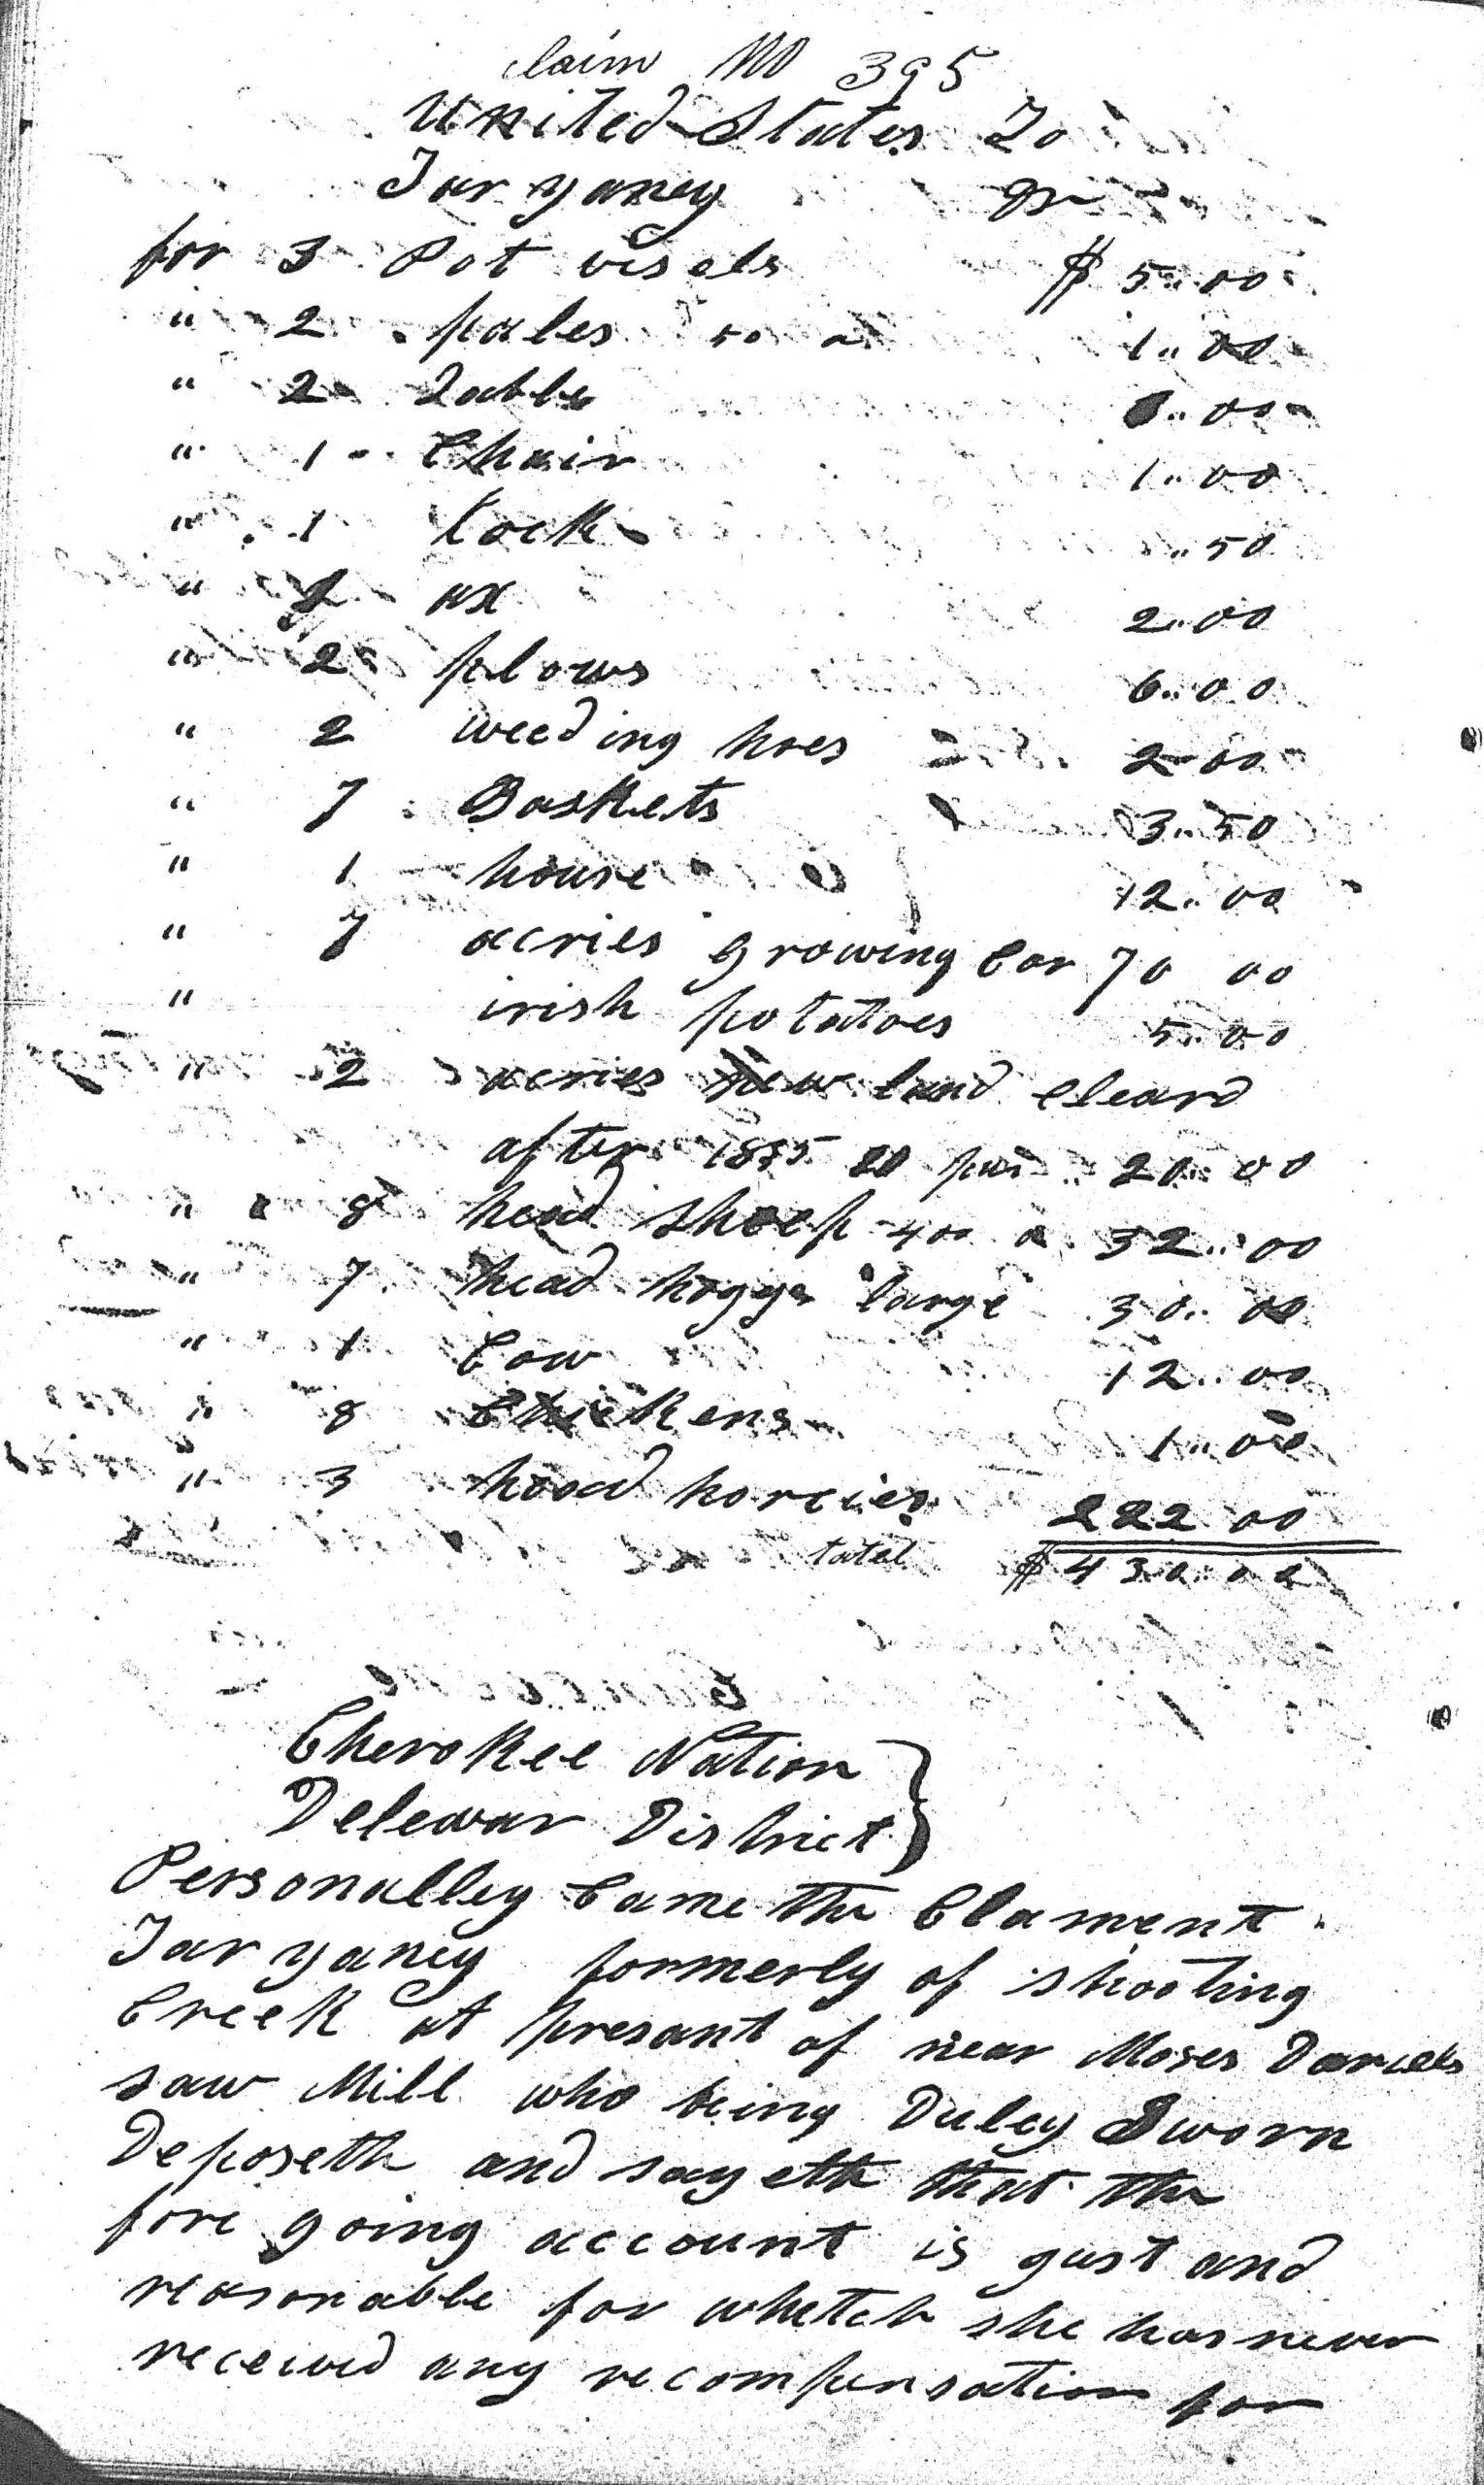 claim No 395
United States To
Tar yaney Dr
for 3 Pot visels $ 5..00
" 2 pales 50 a 1..00
" 2 Table ..00
" 1 Chair 1..00
" 1 Lock ..50
" ax 2..00
" 2 plows 6..00
" 2 weeding hoes 2 00
" 7 Baskets 3..50
" 1 house 12..00
" 7 acries growing Cor 70 00
" irish potatoes 5..00
" 2 acries new land cleard
after 1835 20..00
" 8 head sheep 400 a 32..00
" 7 head hoggs large 30..00
" 1 Cow 12..00
" 8 Chickens 1..00
" 3 head horcies 222 00
total $ 430..00
Cherokee Nation
Delewar District }
Personalley Came the Clament
Tar yaney formerly of shooting
Creek at presant of near Moses Daniels
saw Mill who being Duley Sworn
Deposeth and sayeth that the
fore going account is gust and
reasonable for whetch she has never
received any recompensation for